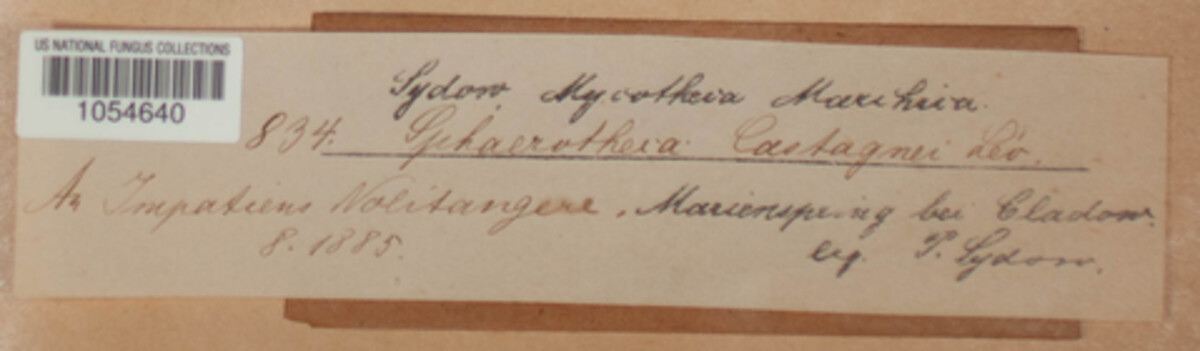 US NATIONAL FUNGUS COLLECTIONS
1054640
Sydow, Mycotheca Marchica.
834. Sphaerotheca Castagnei Lév.
An Impatiens Nolitangere, Marienspring bei Cladow.
8. 1885. leg. P. Sydow.